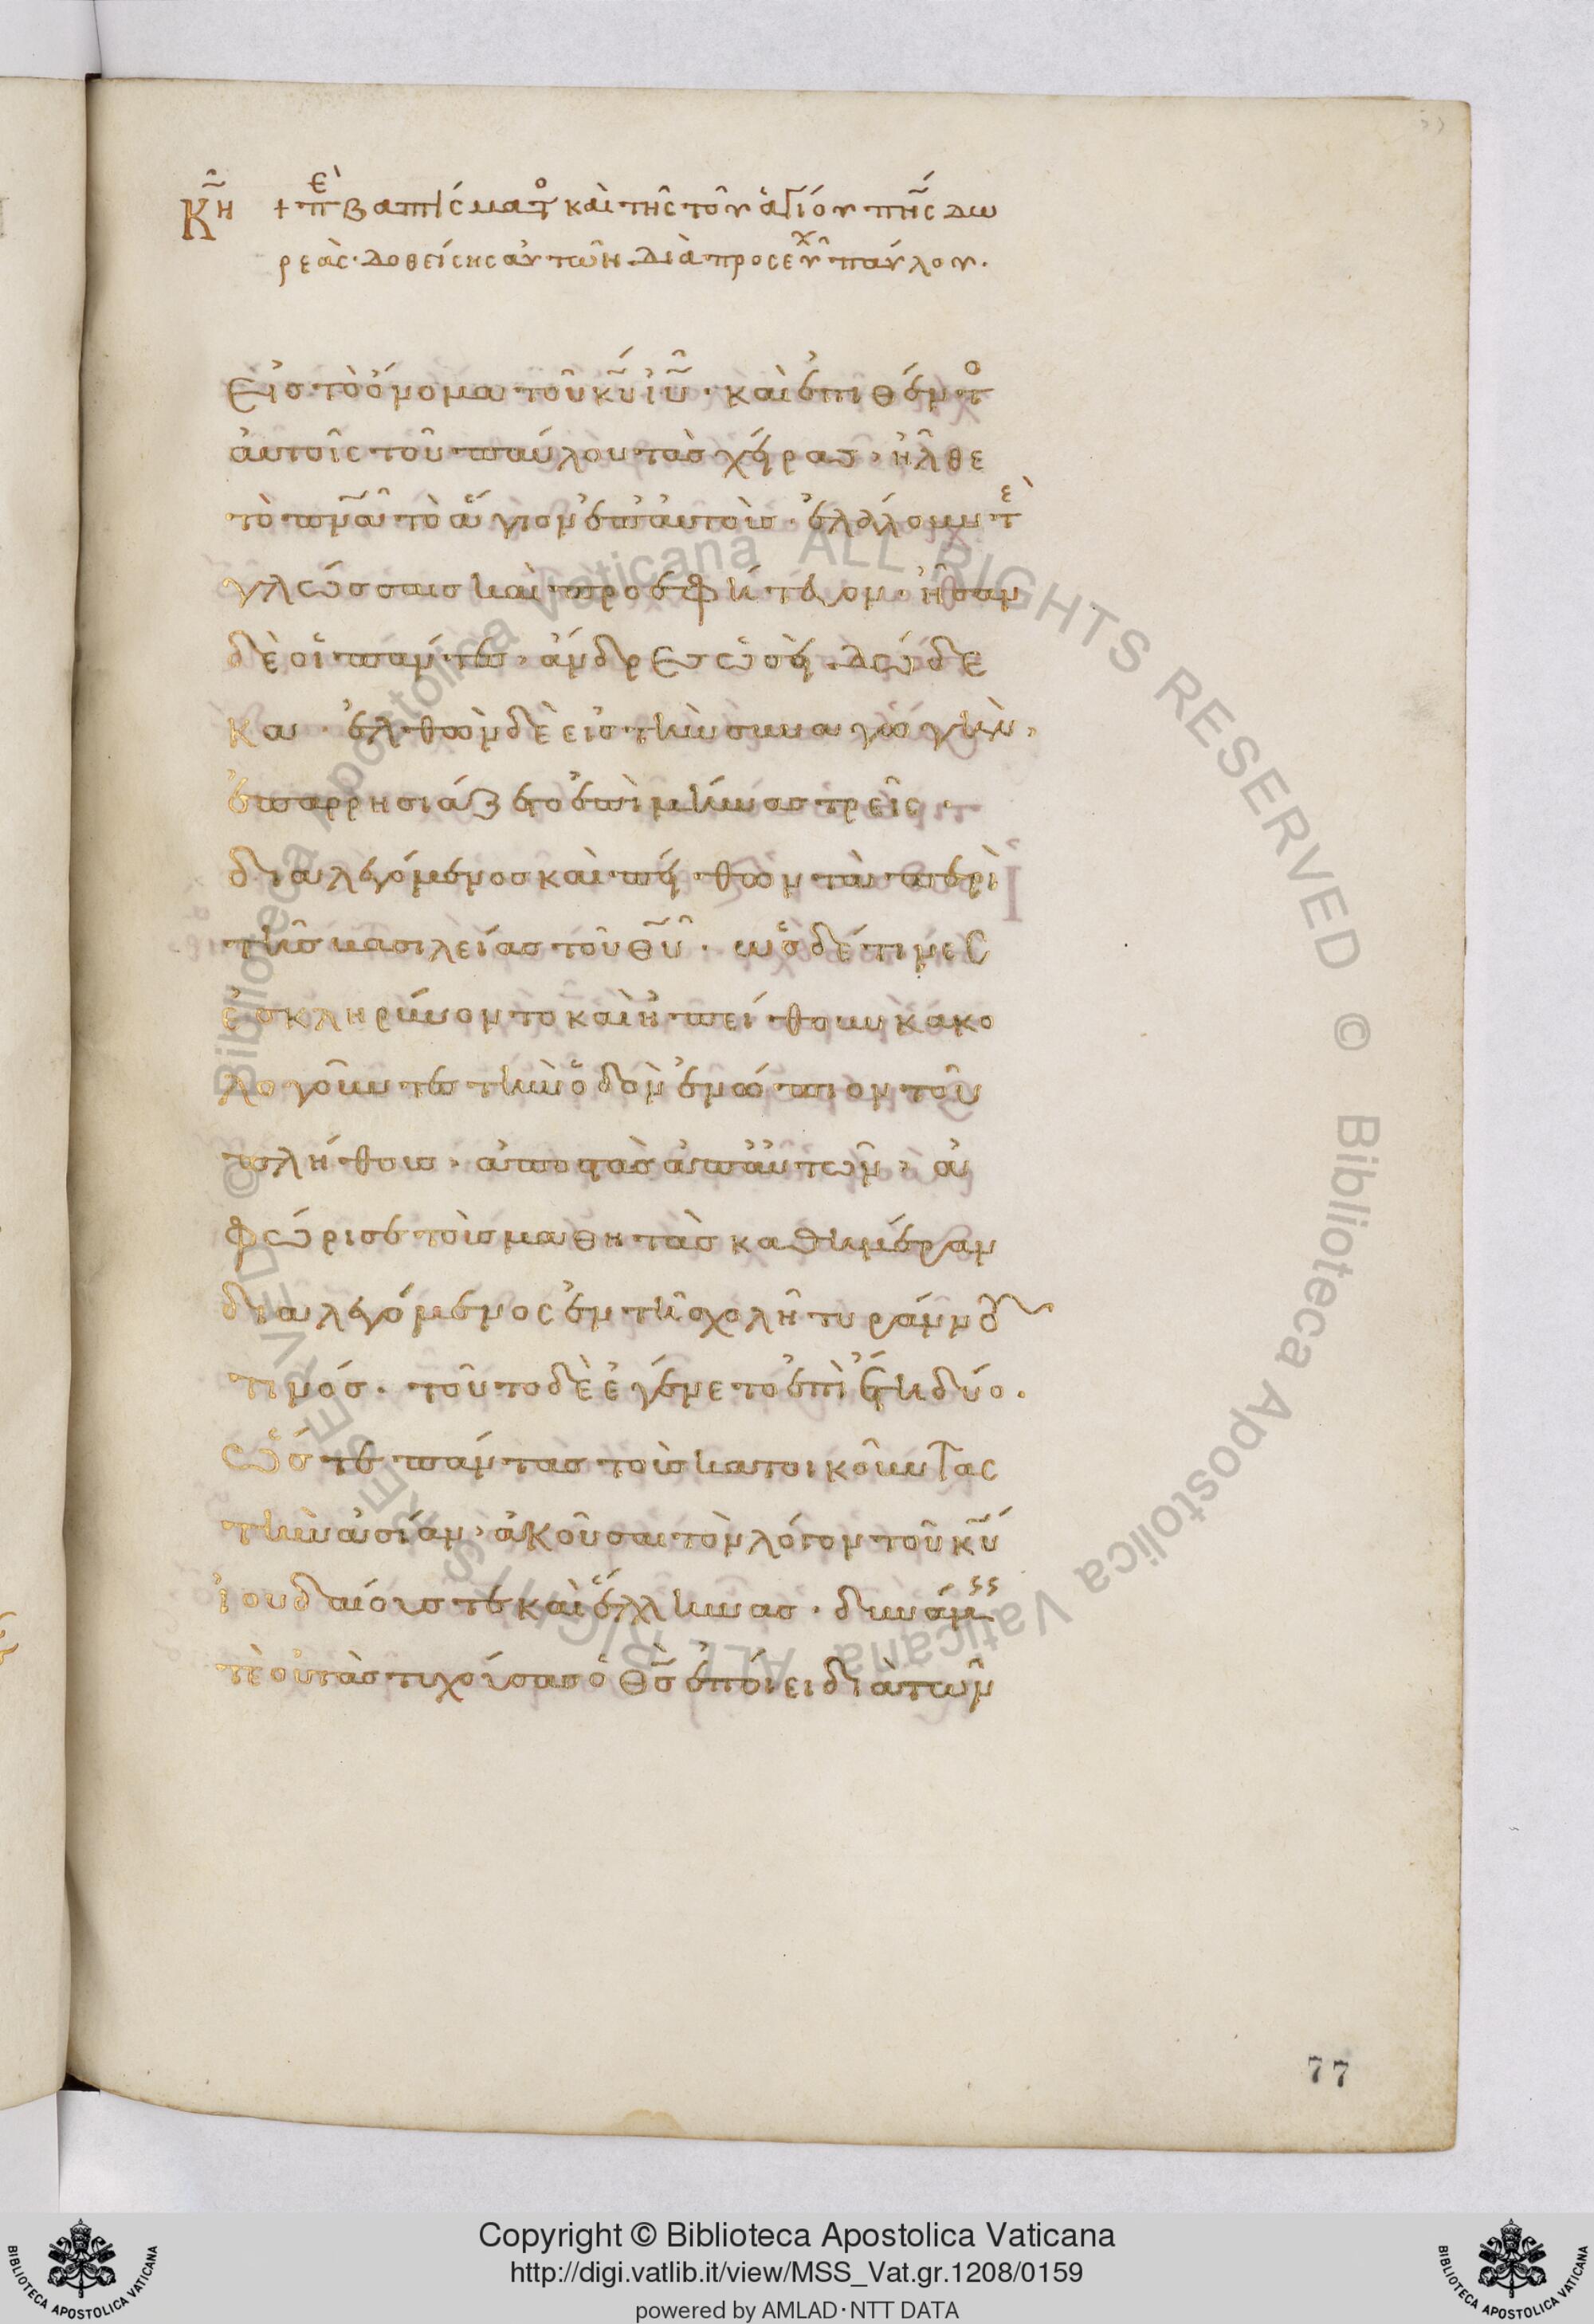 ΚΗ̃ + πὲ βαπτίσματο καὶ τῆς τοῦ ἁγίου πν̅ς δω
ρεὰς· δοθείσης αὐτῶν· διὰ προσευχ παύλου·
Εἰς τὸ ὄνομα τοῦ κ̅υ ἰ̅υ· καὶ ἐπιθέντο
αὐτοῖς τοῦ παύλου τὰς χεῖρας· ἦλθε
τὸ π̅ν̅α τὸ ἅγιον ἐπ' αὐτοὺς· ἐλάλουν τὲ
γλώσσαις καὶ προεφήτευον· ἦσαν
δὲ οἱ πάντες ἄνδρες ὡσεὶ δώδε
κα· εἰσελθὼν δὲ εἰς τὴν συναγωγὴν·
ἐπαρρησιάζετο ἐπὶ μῆνας τρεῖς·
διαλεγόμενος καὶ πείθων τὰ περὶ
τῆς βασιλείας τοῦ θ̅υ· ὡς δέ τινες
ἐσκληρύνοντο καὶ ἠπείθουν κακο
λογοῦντες τὴν ὁδὸν ἐνώπιον τοῦ
πλήθους· ἀποστὰς ἀπ' αὐτῶν· ἀ
φώρισε τοὺς μαθητὰς καθημέραν
διαλεγόμενος ἐν τῇ σχολῇ τυράννου
τινός· τοῦτο δὲ ἐγένετο ἐπὶ ἔτη δύο·
ὥστε πάντας τοὺς κατοικοῦντας
τὴν ἀσίαν· ἀκοῦσαι τὸν λόγον τοῦ κ̅υ
ἰουδαίους τε καὶ ἕλληνας· δυνάμεις
τὲ οὐ τὰς τυχούσας ὁ θ̅ς ἐποίει διὰ τῶν
77
© Biblioteca Apostolica Vaticana ALL RIGHTS RESERVED © Biblioteca Apostolica Vaticana ALL RIGHTS RESERVED
Copyright © Biblioteca Apostolica Vaticana
http://digi.vatlib.it/view/MSS_Vat.gr.1208/0159
powered by AMLAD·NTT DATA
BIBLIOTECA APOSTOLICA VATICANA
BIBLIOTECA APOSTOLICA VATICANA